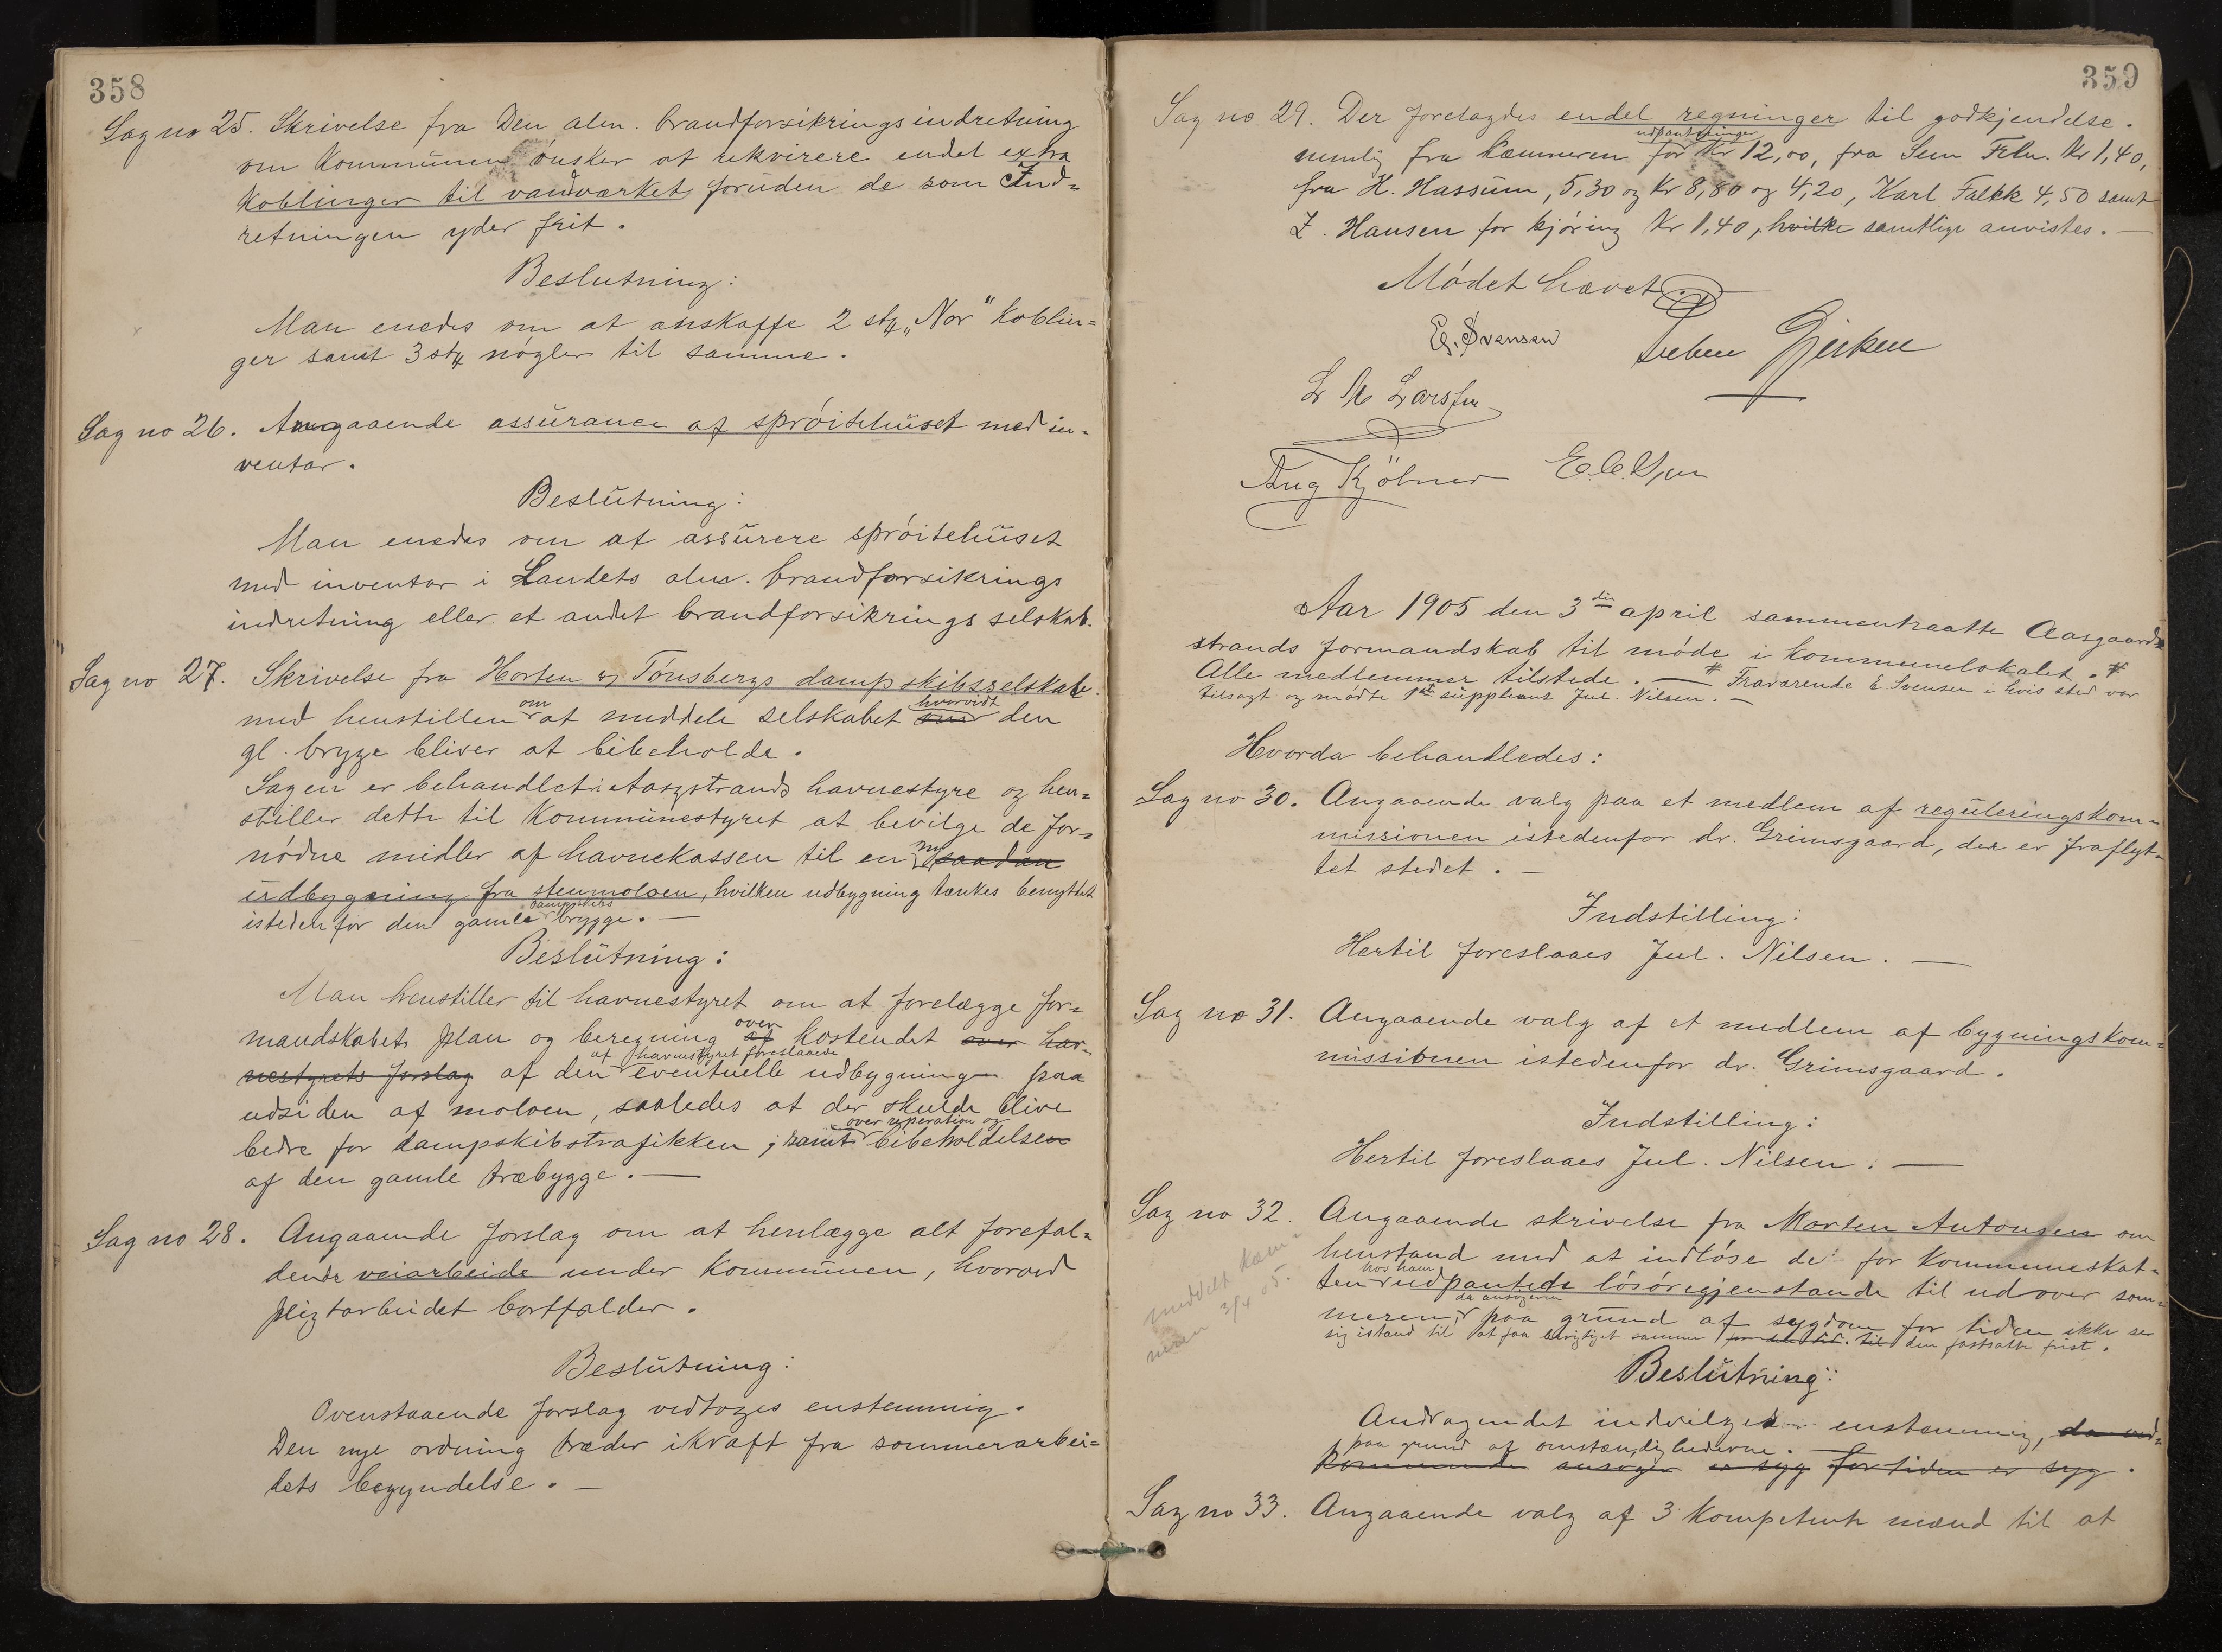 358
Sag no 25. Skrivelse fra Den alm. brandforsikringsindretning
om Kommunen ønsker at rekvirere endel extra
Koblinger til vandværket foruden de som Ind-
retningen yder frit.
Beslutning:
Man enedes om at anskaffe 2 stk „Nor" Koblin-
ger samt 3 stk nøgler til samme.
Sag no 26. Angaaende assurance af sprøitehuset med in-
ventar.
Beslutning:
Man enedes om at assurere sprøitehuset
med inventar i Landets alm. brandforsikrings
indretning eller et andet brandforsikrings selskab.
Sag no 27. Skrivelse fra Horten og Tønsbergs dampskibsselskab.
med henstillen om at meddele selskabet hvorvidt den
gl. brygge bliver at bibeholde.
Sagen er behandlet i Aasgstrands havnestyre og hen-
stiller dette til Kommunestyret at bevilge de for-
nødne midler af havnekassen til en ny saadan
udbygning fra stenmoloen, hvilken udbygning tænkes benyttet
istedenfor den gamle dampskibs brygge. —
Beslutning:
Man henstiller til havnestyret om at forelægge for-
mandskabet plan og beregning over af kostendet over hav-
nestyrets forslag af den af havnestyret foreslaaede eventuelle udbygning paa
udsiden af moloen, saaledes at der skulde blive
bedre for dampskibstrafikken, samt over reperation og bibeholdelsen
af den gamle træbygge. —
Sag no 28. Angaaende forslag om at henlægge alt forefal-
dende veiarbeide under Kommunen, hvorved
pligtarbeidet bortfalder.
Beslutning:
Ovenstaaende forslag vedtoges enstemmig.
Den nye ordning træder ikraft fra sommerarbei-
dets begyndelse. —
359
Sag no 29. Der forelagdes endel regninger til godkjendelse.
nemlig fra Kæmneren udpantninger for Kr 12,00, fra Sem Frln. Kr 1,40,
fra H. Hassum, 5,30 og Kr 8,80 og 4,20, Karl Falck 4,50 samt
Z. Hansen for kjøring Kr 1,40, hvilke samtlige anvistes. —
Mødet hævet
E. Svensen
L M Larssen
Aug Kjölner
Aar 1905 den 3die april sammentraatte Aasgaard-
strands formandskab til møde i kommunelokalet. #
Alle medlemmer tilstede. — # Fraværende E. Svensen i hvis sted var
tilsagt og mødte 1ste suppleant Jul. Nilsen. —
Hvorda behandledes:
Sag no 30. Angaaende valg paa et medlem af reguleringskom-
missionen istedenfor dr. Grimsgaard, der er fraflyt-
tet stedet. —
Indstilling:
Hertil foreslaaes Jul. Nilsen. —
Sag no 31. Angaaende valg af et medlem af bygningskom-
missionen istedenfor dr. Grimsgaard.
Indstilling:
Hertil foreslaaes Jul. Nilsen. —
Sag no 32. Angaaende skrivelse fra Morten Antonsen om
henstand med at indløse de for Kommuneskat-
ten hos ham udpantede løsøregjenstande til udover som-
meren, da ansøgeren paa grund af sygdom for tiden ikke ser
sig istand til at faa berigtiget samme til den fastsatte frist.
meddelt kæm-
neren 3/4 05.
Beslutning:
Andragendet indvilges enstemmig, da ved-
paa grund af omstændighederne. —
kommende ansøger er syg for tiden er syg.
Sag no 33. Angaaende valg af 3 kompetente mænd til at